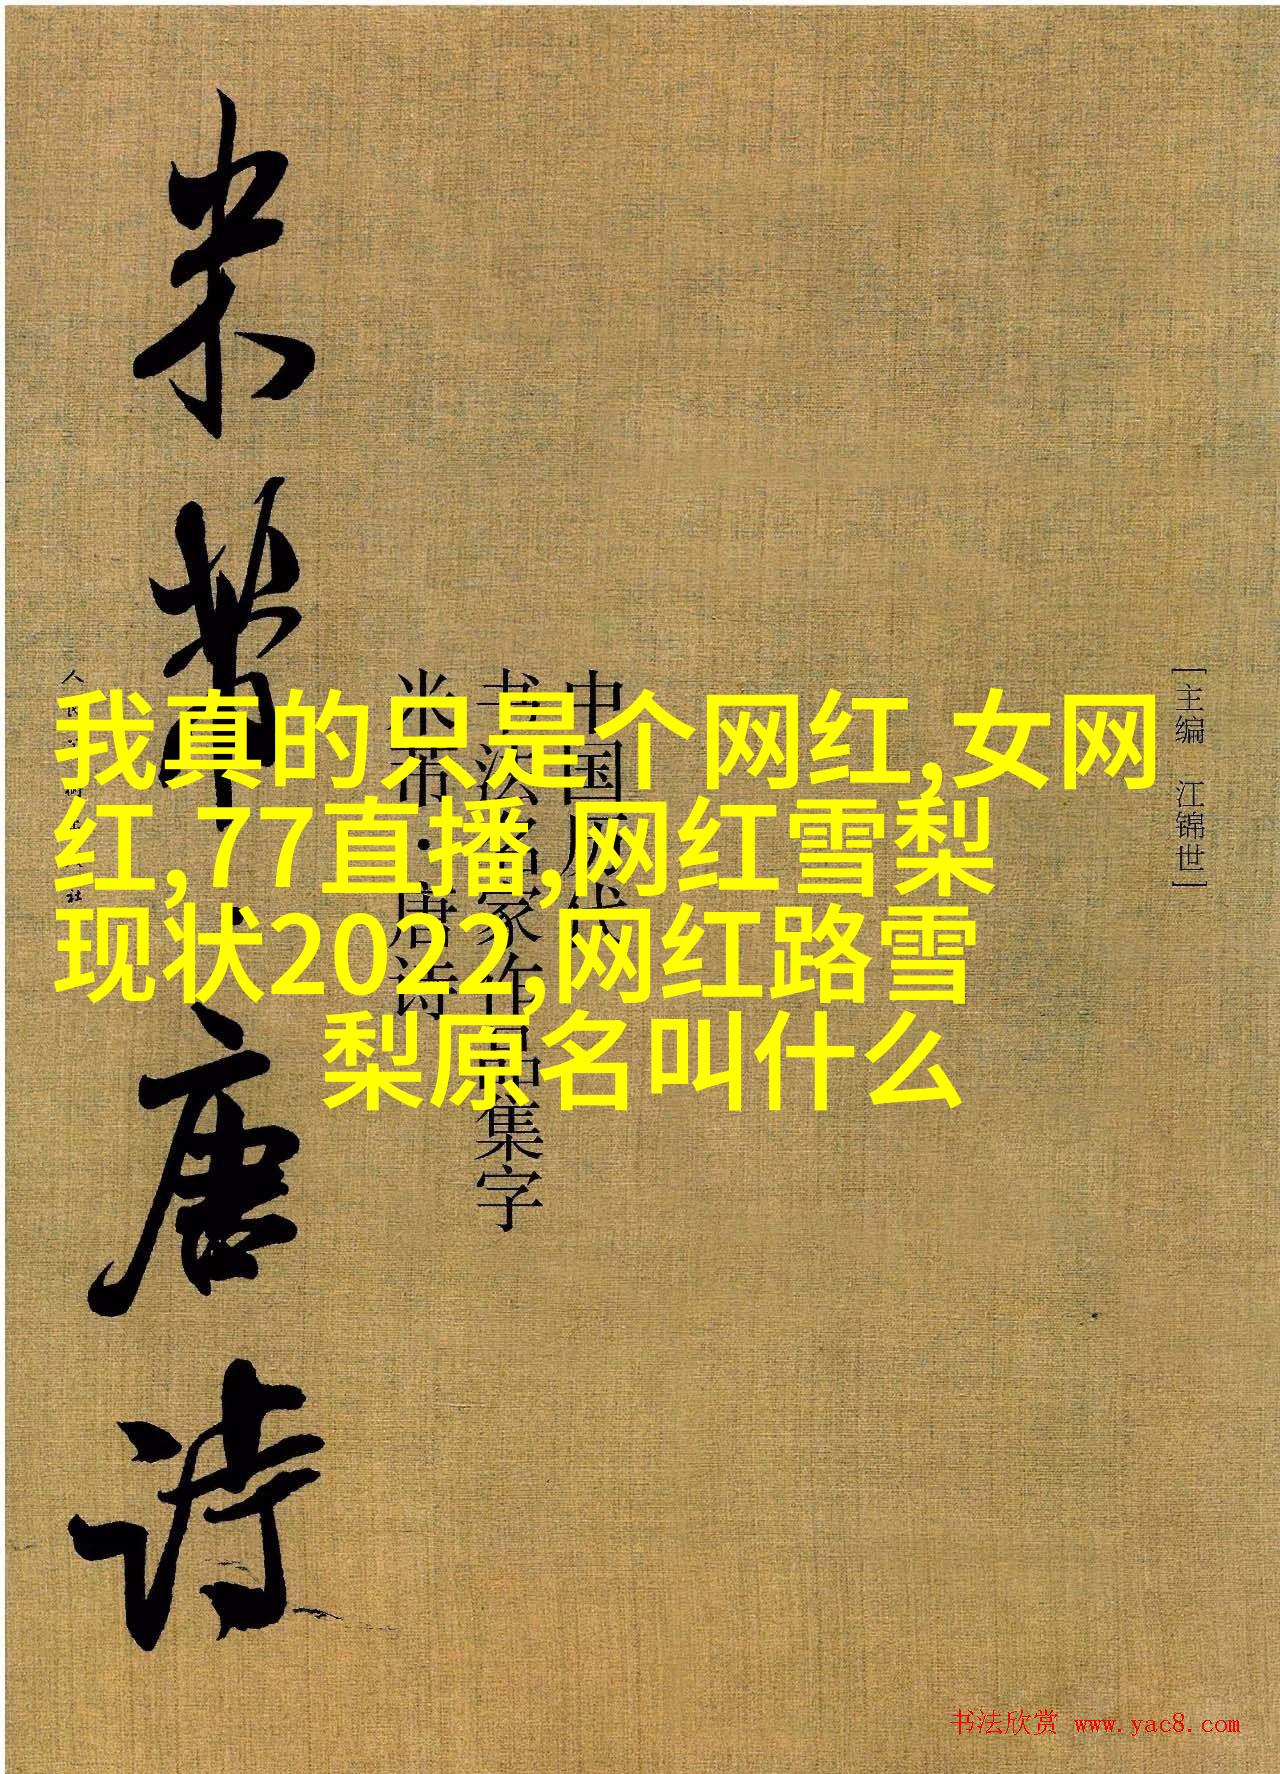 米芾·唐诗
我真的只是个网红,女网
红,77直播,网红雪梨
现状2022,网红路雪
梨原名叫什么
中国历代
书法名家作品集字
米芾·唐诗
[主编 江锦世]
书法欣赏 www.yac8.com